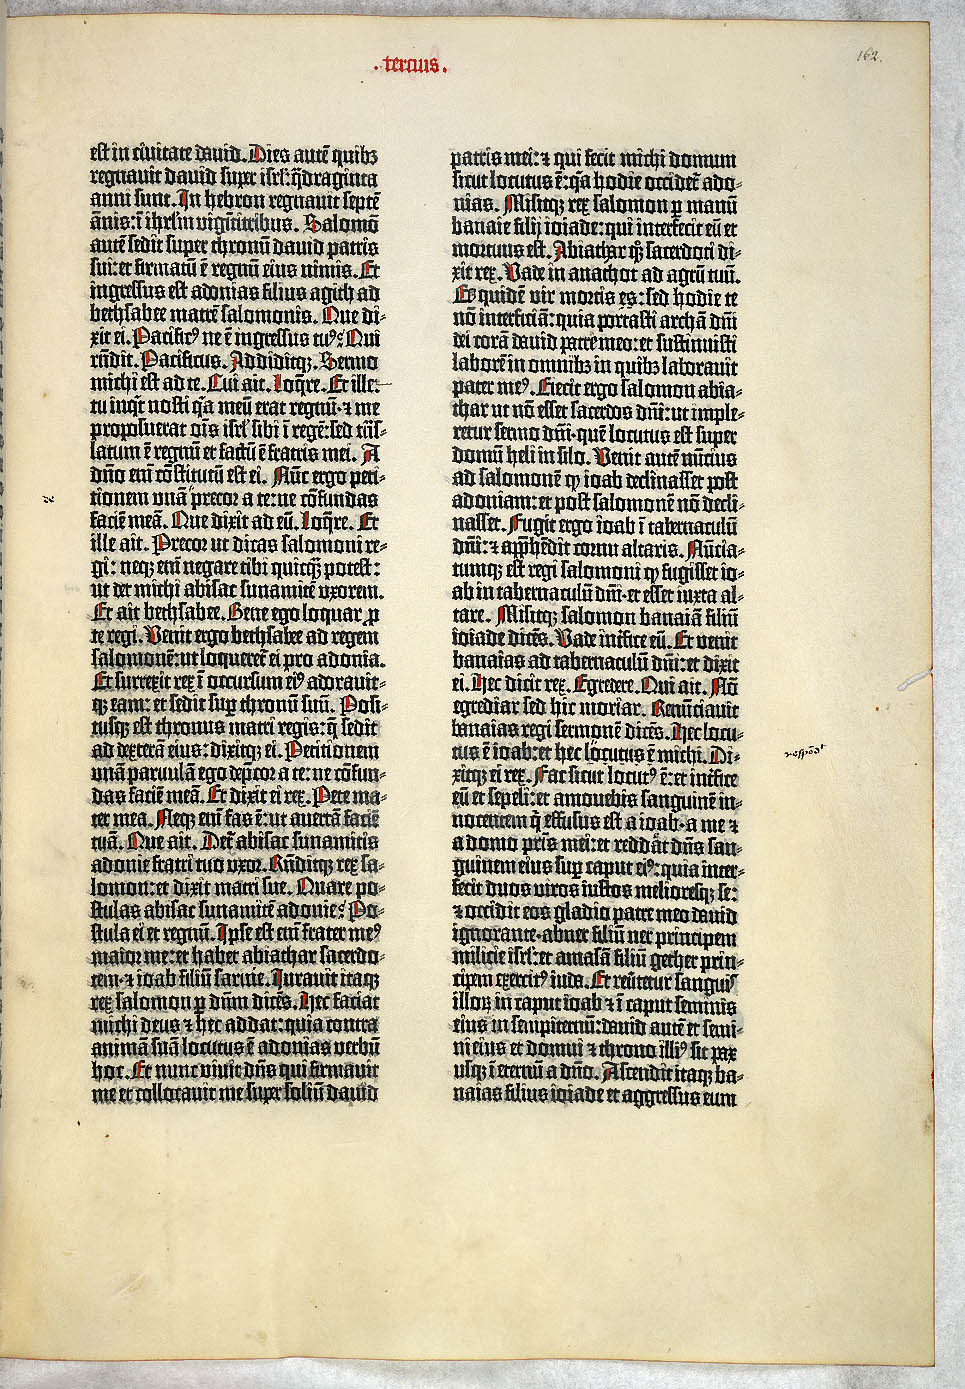 .tercius.
162.
est in civitate david. Dies autē quibꝫ
regnavit david super isrl: q̄draginta
anni sunt. In hebron regnavit septē
ānis: ī ihrl'm vigīntitribus. Salomō
autē sedit super thronū david patris
sui: et firmatū ē regnū eius nimis. Et
ingressus est adonias filius agith ad
bethsabee matrē salomonis. Que di-
xit ei. Pacificꝰ ne ē ingressus tuꝰ? Qui
rn̄dit. Pacificus. Addiditqꝫ. Sermo
michi est ad te. Cui ait. Loq̄re. Et ille:
tu inqt nosti q̄a meū erat regnū· ⁊ me
proposuerat oīs isrl' sibi ī regē: sed trās-
latum ē regnū et factū ē fratris mei. A
dn̄o em̄ cōstitutū est ei. Nūc ergo peti-
tionem unā precor a te: ne cōfundas
de
faciē meā. Que dixit ad eū. Loq̄re. Et
ille ait. Precor ut dicas salomoni re-
gi: neqꝫ em̄ negare tibi quicq̄ꝫ potest:
ut det michi abisac sunamitē uxorem.
Et ait bethsabee. Bene ego loquar ꝓ
te regi. Venit ergo bethsabee ad regem
salomonē: ut loqueret̄ ei pro adonia.
Et surrexit rex ī occursum eiꝰ adoravit-
qꝫ eam: et sedit sup̄ thronū suū. Posi-
tusqꝫ est thronus matri regis: q̄ sedit
ad dexterā eius: dixitqꝫ ei. Petitionem
unā parvulā ego dep̄cor a te: ne cōfun-
das faciē meā. Et dixit ei rex. Pete ma-
ter mea. Neqꝫ em̄ fas ē: ut avertā faciē
tuā. Que ait. Det̄ abisac sunamitis
adonie fratri tuo uxor. Rn̄ditqꝫ rex sa-
lomon: et dixit matri sue. Quare po-
stulas abisac sunamitē adonie? Po-
stula ei et regnū. Ipse est em̄ frater meꝰ
maior me: et habet abiathar sacerdo-
tem· ⁊ ioab filiū sarvie. Iuravit itaqꝫ
rex salomon ꝑ dn̄m dicēs. Hec faciat
michi deus ⁊ hec addat: quia contra
animā suā locutus ē adonias verbū
hoc. Et nunc vivit dn̄s qui firmavit
me et collocavit me super soliū david
patris mei: ⁊ qui fecit michi domum
sicut locutus ē: q̄a hodie occidet̄ ado-
nias. Misitqꝫ rex salomon ꝑ manū
banaie filij ioiade: qui interfecit eū et
mortuus est. Abiathar qꝫ sacerdoti di-
xit rex. Vade in anathot ad agrū tuū.
Et quidē vir mortis es: sed hodie te
nō interficiā: quia portasti archā dn̄i
dei corā david patre meo: et sustinuisti
laborē in omnibꝫ in quibꝫ laboravit
pater meꝰ. Eiecit ergo salomon abia-
thar ut nō esset sacerdos dn̄i: ut imple-
retur sermo dn̄i· quē locutus est super
domū heli in silo. Venit autē nūcius
ad salomonē ꝙ ioab declinasset post
adoniam: et post salomonē nō decli-
nasset. Fugit ergo ioab ī tabernaculū
dn̄i: ⁊ apphēdit cornu altaris. Nūcia-
tumqꝫ est regi salomoni ꝙ fugisset io-
ab in tabernaculū dn̄i· et esset iuxta al-
tare. Misitqꝫ salomon banaiā filiū
ioiade dicēs. Vade intfice eū. Et venit
banaias ad tabernaculū dn̄i: et dixit
ei. Hec dicit rex. Egredere. Qui ait. Nō
egrediar sed hic moriar. Renūciavit
banaias regi sermonē dicēs. Hec locu-
tus ē ioab: et hec locutus ē michi. Di-
xitqꝫ ei rex. Fac sicut locutꝰ ē: et intfice
eū et sepeli: et amovebis sanguinē in-
nocentem q̄ effusus est a ioab· a me ⁊
a domo p̄ris mei: et reddat dn̄s san-
guinem eius sup̄ caput eiꝰ: quia inter-
fecit duos viros iustos melioresqꝫ se:
⁊ occidit eos gladio patre meo david
ignorante· abner filiū ner principem
milicie isrl: et amasā filiū gether prin-
cipem exercitꝰ iuda. Et revertetur sanguis
illoꝝ in caput ioab ⁊ ī caput seminis
eius in sempiternū: david autē et semi-
ni eius et domui ⁊ throno illiꝰ sit pax
usqꝫ ī eternū a dn̄o. Ascendit itaqꝫ ba-
naias filius ioiade et aggressus eum